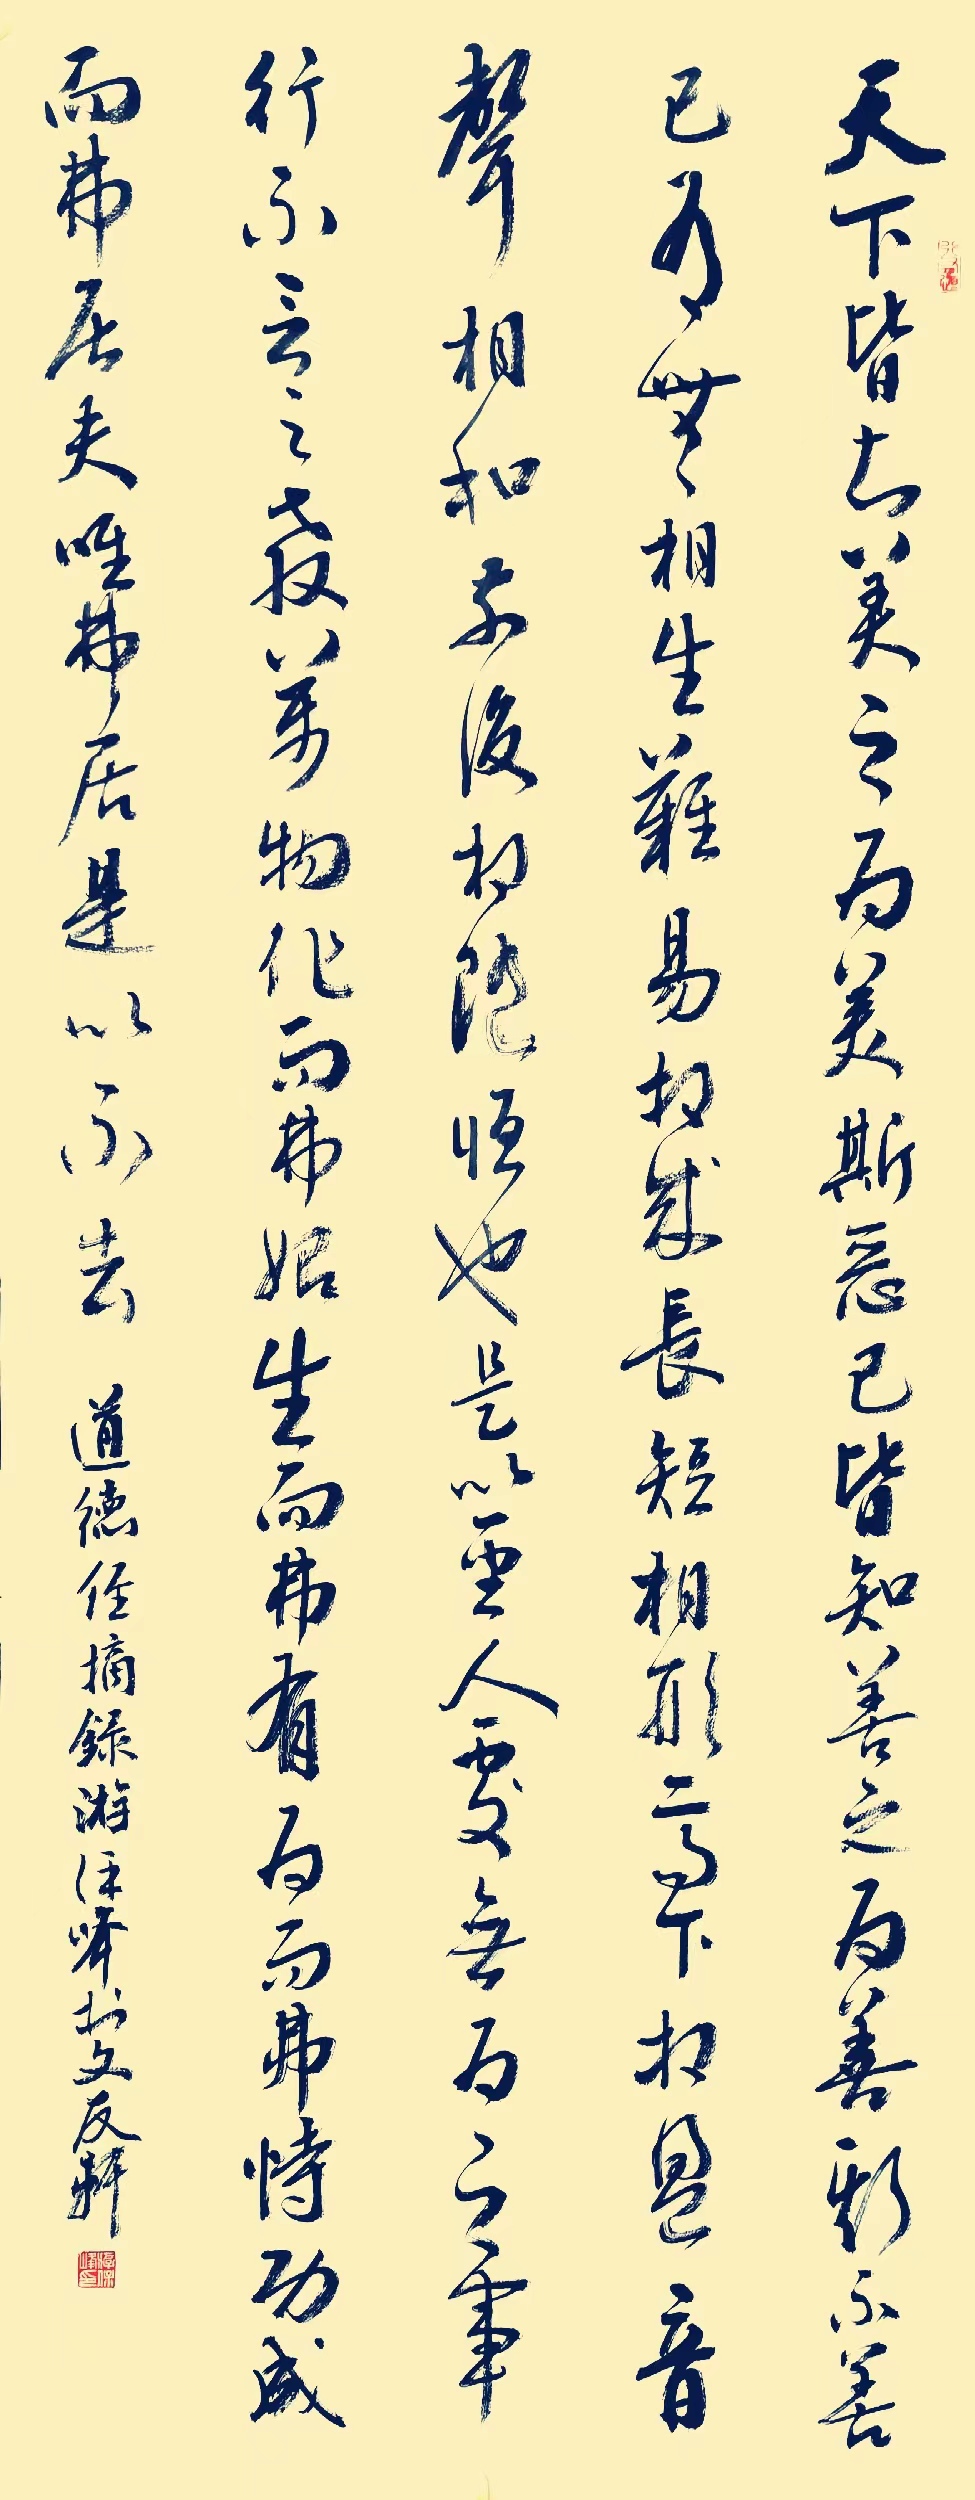 天下皆知美之為美斯惡已皆知善之為善斯不善
已有無相生難易相成長短相形高下相盈音
聲相和前後相隨恒也是以聖人處無為之事
行不言之教萬物作而弗始生而弗有為而弗恃功成
而弗居夫唯弗居是以不去 道德經摘錄游江峰書文友軒